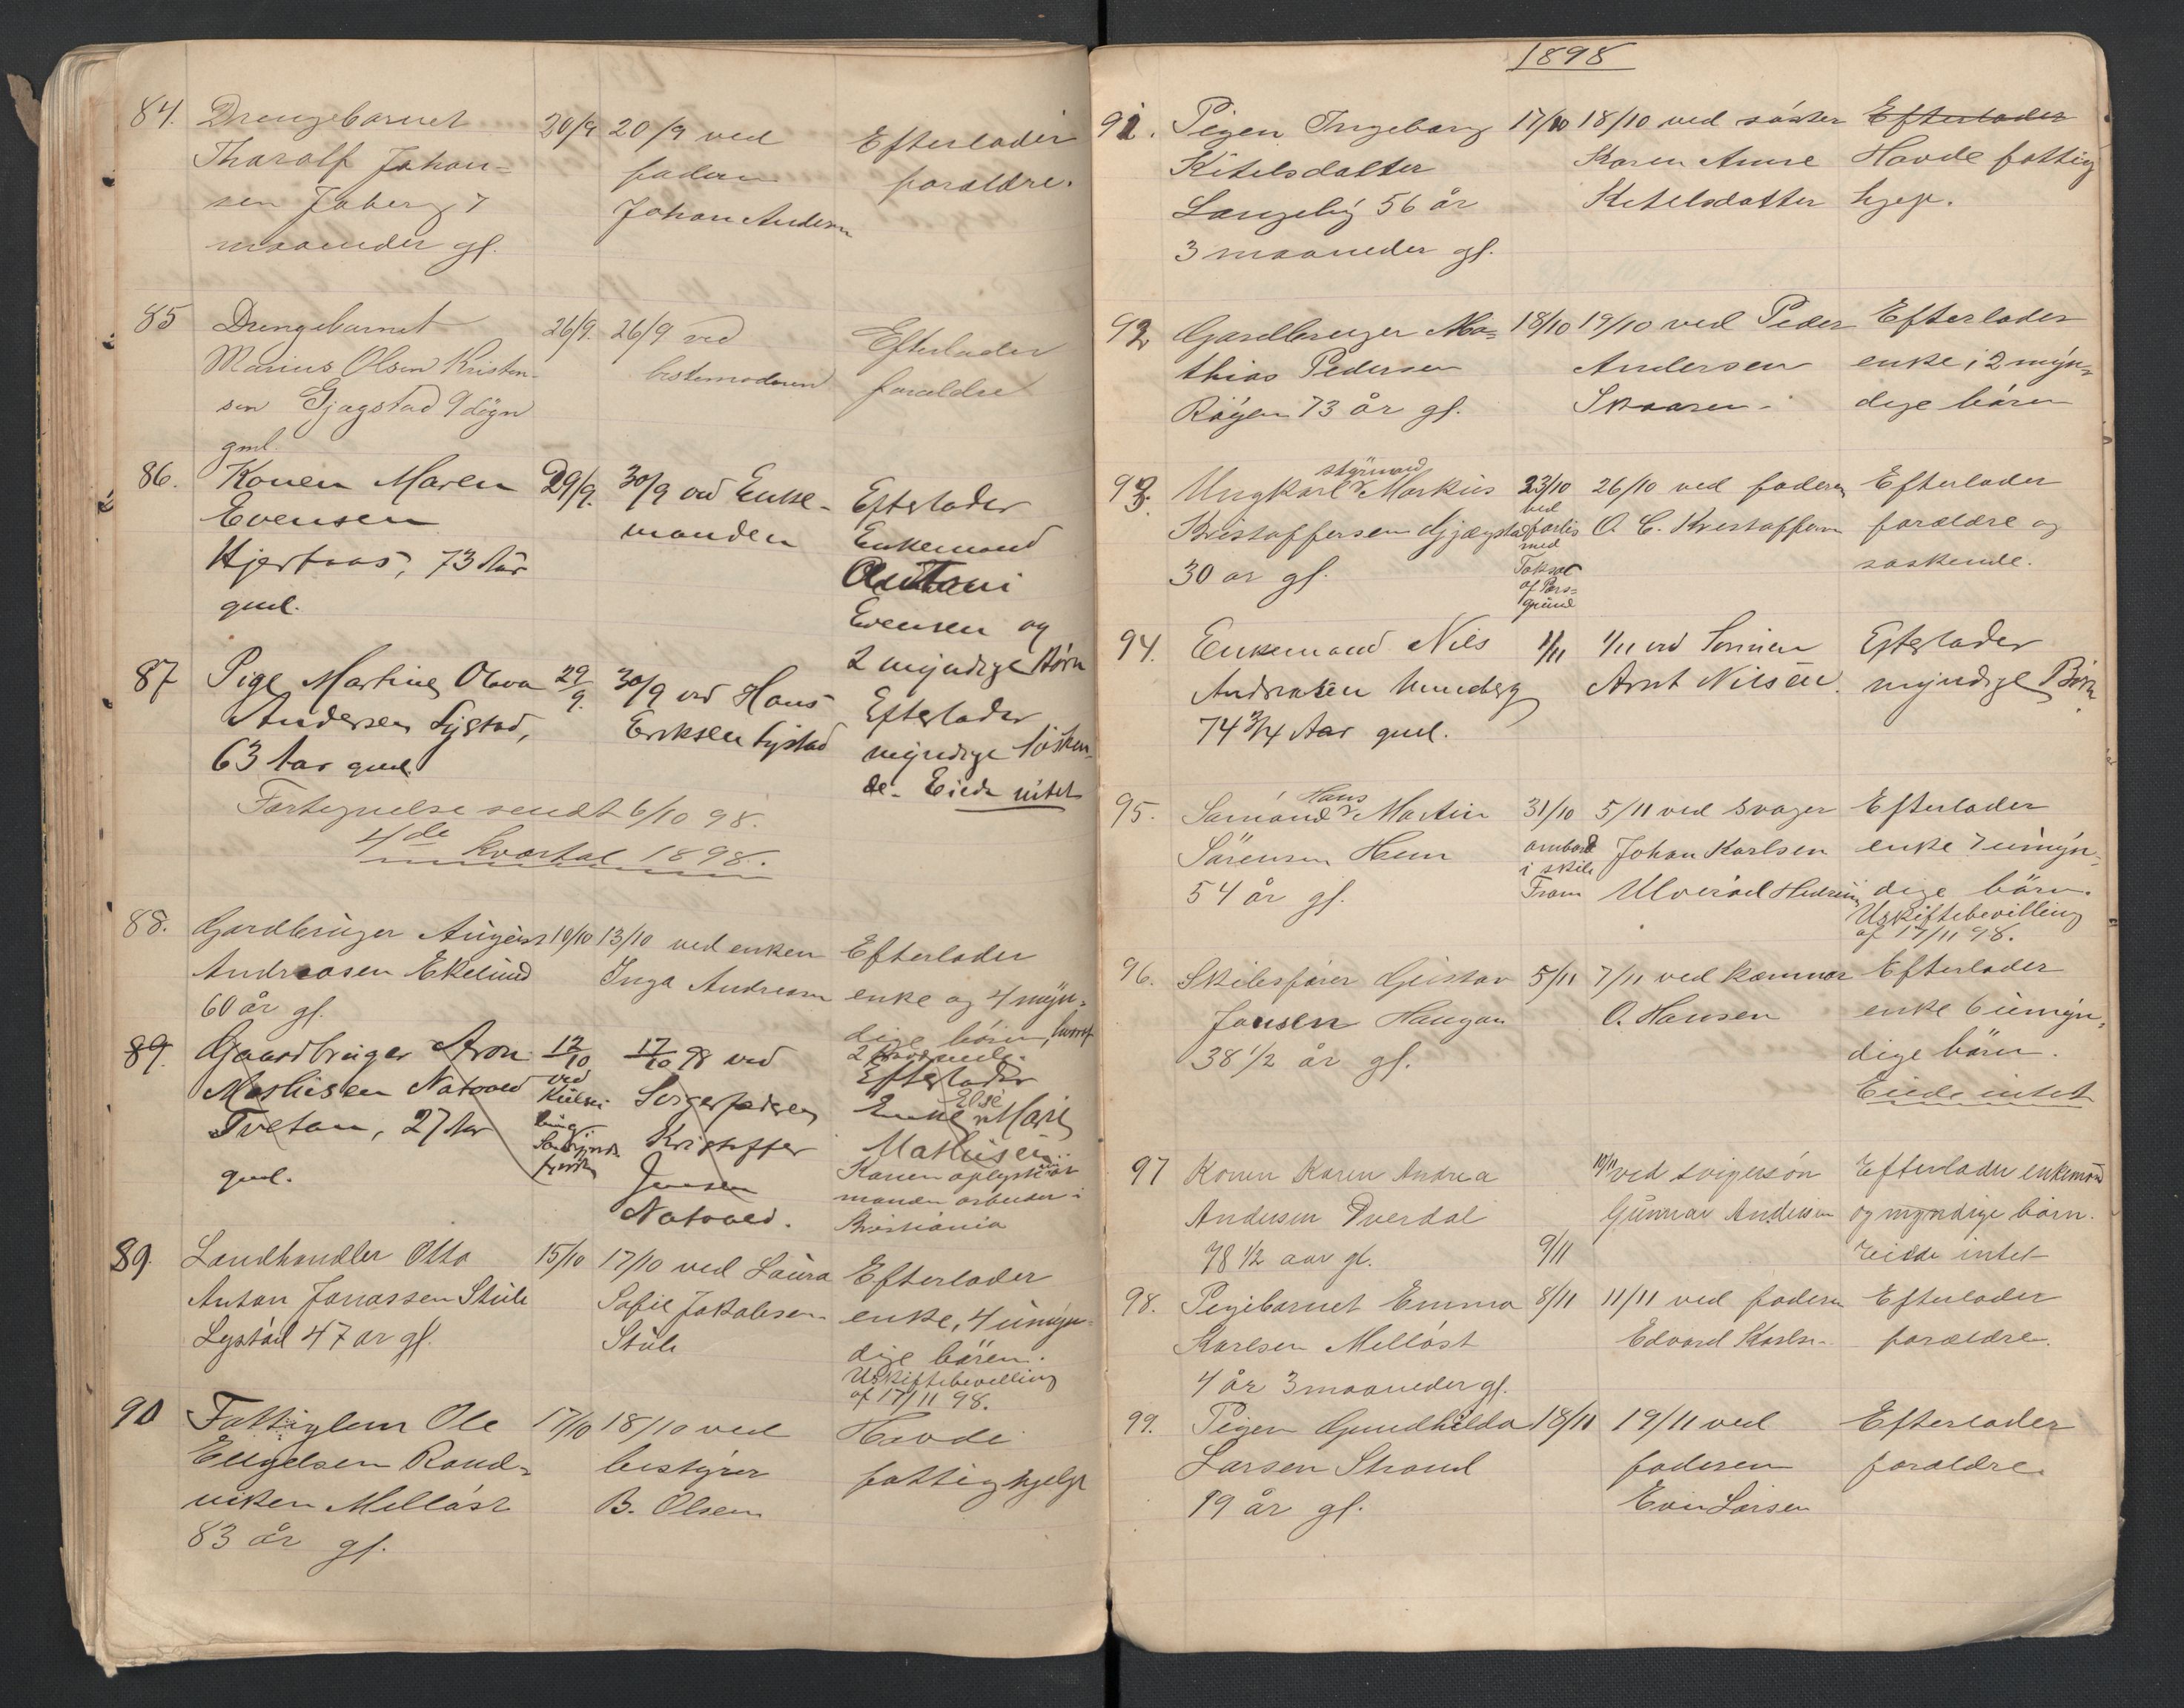 84. Drengebarnet 20/9 20/9 ved Efterlader
Tharalf Johan= faderen forældre.
sen Faberg 7 Johan Andersen
maaneder gl.
85 Drengebarnet 26/9. 26/9 ved Efterlader
Marius Olsen Kristen- bestemoderen forældre
sen Gjøgstad 9 døgn
gml.
86. Konen Maren 29/9. 30/9 ved Enke- Efterlader
Evensen manden Enkemand
Hjertaas, 73 Aar Antoni
gml. Evensen og
2 myndige Børn
87 Pige Martine Olava 29/9. 30/9 ved Hans Efterlader
Andersen Lystad, Eriksen Lystad myndige Søsken-
63 Aar gml. de- Eiede intet
Fortegnelse sendt 6/10 98.
4de Kvartal 1898.
88. Gardbruger August 10/10 13/10 ved enken Efterlader
Andreasen Ekelund Inga Andreasen enke og 4 myn-
60 år gl. dige børn, hvoraf
2
89. Gaardbruger Aron 12/10 17/10 98 ved Efterlader
Mathisen Natvaed ved Svigerfaderen Enke Else Marie
Tvetan, 27 Aar Kristoffer Mathisen
gml. Jensen Konen oplyste at
Natvaed. manden arbeider i
Kristiania
89. Landhandler Otto 15/10 17/10 ved Laura Efterlader
Anton Jonassen Stule Sofie Jakobsen enke, 4 umyn-
Lystad 47 ar gl. Stule dige børen.
Uskiftebevilling
af 17/11 98.
90 Fattiglem Ole 17/10 18/10 ved Havde
Ellefsen Rand- bestyrer fattighjelp
viken Melløst B. Olsen
83 år gl.
1898
91. Pigen Ingeborg 17/10 18/10 ved søster Efterlader
Kitelsdatter Karen Anne Havde fattig
Langeby 56 år Kitelsdatter hjep.
3 maaneder gl.
92 Gardbruger Ma= 18/10 19/10 ved Peder Efterlader
thias Pedersen Andersen enke i 2 myn=
Røyen 73 år gl. Skaaren - dige børen
93. Ungkarl styrmand Markus 23/10 26/10 ved faderen Efterlader
Kristoffersen Gjøgstad ved forlis O. C. Kristoffersen forældre og
30 ar gl. med søskende.
af Pors=
grund
94. Enkemand Nils 1/11 1/11 ved Sønnen Efterlader
Andreasen Arnt Nilsen. myndige Børn.
74 3/4 Aar gml.
95. Sømand Hans Martin 31/10 5/11 ved svoger Efterlader
Sørensen Hem ombord Johan Karlsen enke 7 umyn-
54 år gl. i skib dige børn.
Fram Uskiftebevilling
af 17/11 98.
96. Skibsfører Gustav 5/11 7/11 ved kæmner Efterlader
Jansen Haugan O. Hansen enke 6 umyn-
38 1/2 år gl. dige børn.
Eiede intet
97 Konen Karen Andrea 10/11 ved svigersøn Efterlader enkemand
Andersen Dverdal Gunnar Andersen og myndige børn.
78 1/2 aar gl. 9/11 Eiede intet
98. Pigebarnet Emma 8/11 11/11 ved faderen Efterlader
Karlsen Melløst Edvard Karlsen forældre.
4 år 3 maaneder gl.
99. Pigen Gundhilda 18/11 19/11 ved Efterlader
Larsen Strand faderen forældre.
19 år gl. Even Larsen